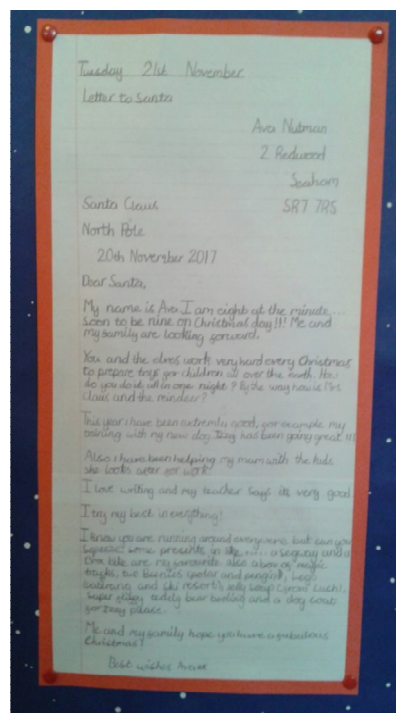 Tuesday 21st November
Letter to Santa
Ava Nutman
2 Redwood
Seaham
Santa Claus SR7 7RS
North Pole
20th November 2017
Dear Santa,
My name is Ava I am eight at the minute...
soon to be nine on Christmas day!!! Me and
my family are looking forward.
You and the elves work very hard every Christmas
to prepare toys for children all over the earth. How
do you do it all in one night? By the way how is Mrs
Claus and the reindeer?
This year i have been extremly good, for example my
training with my new dog Izzy has been going great!!!
Also i have been helping my mum with the kids
she looks after for work.
I love writing and my teacher says its very good
I try my best in everything!
I know you are running around everywhere but can you
squeeze some presents in like..... a segway and a
bmx bike are my favourite also a box of magic
tricks, two Beanies (petar and penguin), Lego
and ski resort, Jelly soap (from Lush),
super teddy bear and a dog coat
for Izzy please.
Me and my family hope you have a fabulous
Christmas!
Best wishes